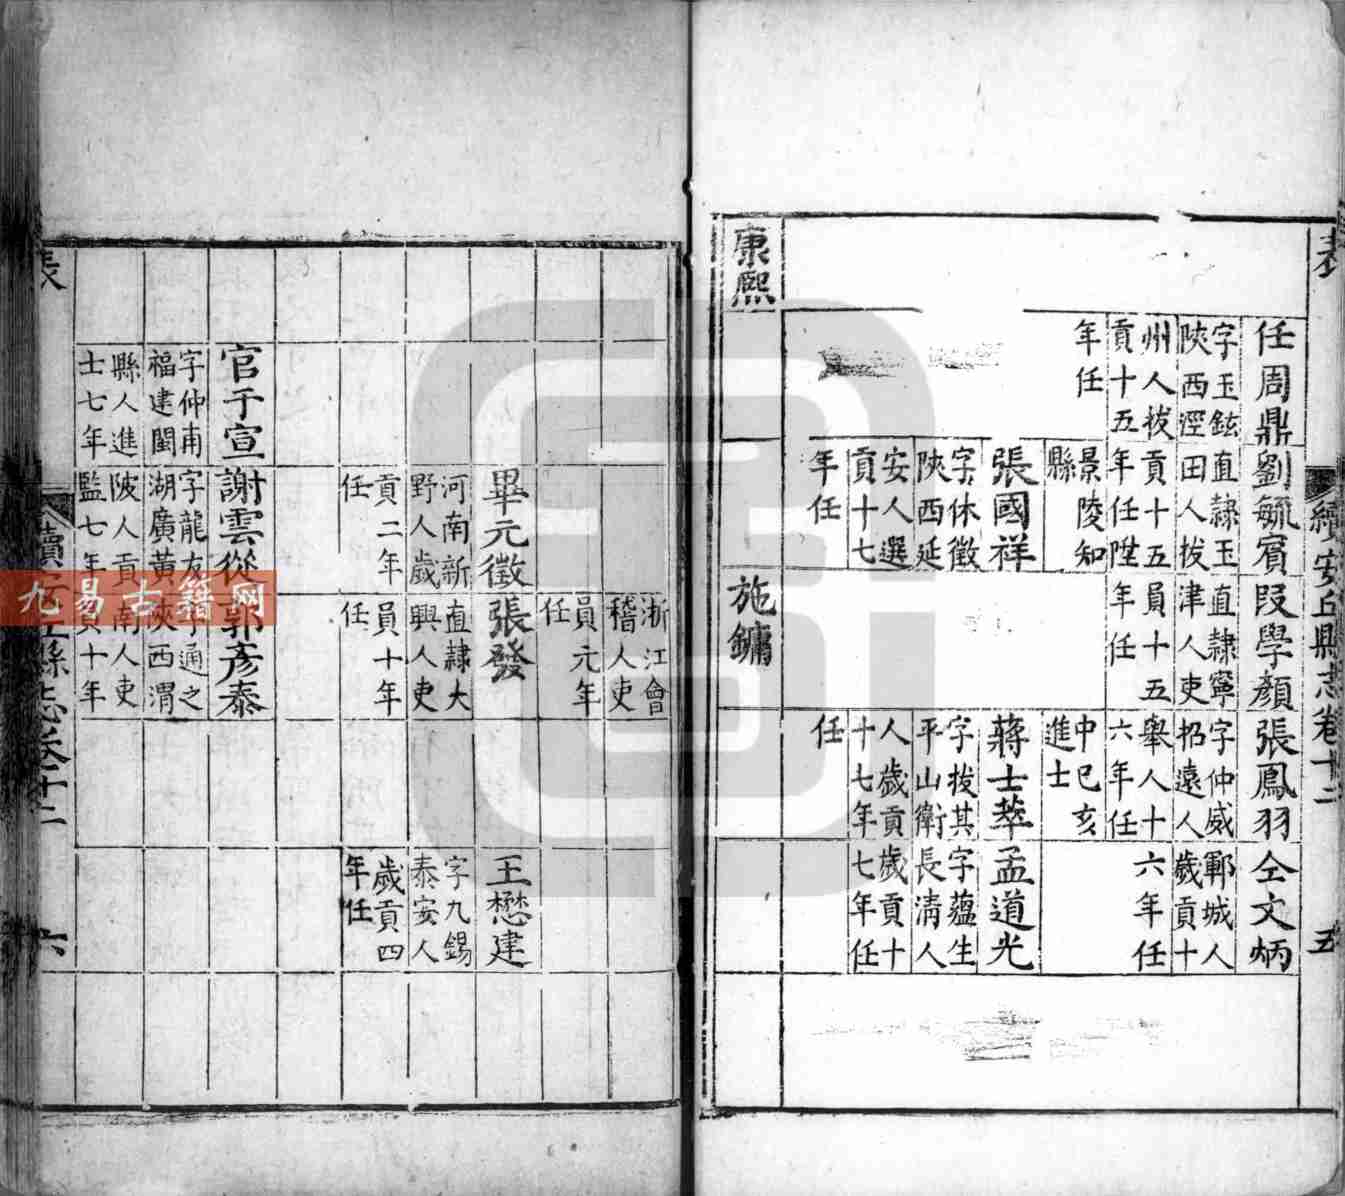 表
續安丘縣志卷十二
五
任周鼎
字玉鉉
陝西涇
州人拔
貢十五
年任
劉毓賓
直隸玉
田人拔
貢十五
年任陞
景陵知
縣
段學顏
直隸寧
津人吏
員十五
年任
張鳳羽
字仲威
招遠人
舉人十
六年任
中己亥
進士
仝文炳
鄆城人
歲貢十
六年任
張國祥
字休徵
陝西延
安人選
貢十七
年任
蔣士萃
字拔其
平山衛
人歲貢
十七年
任
孟道光
字蘊生
長清人
歲貢十
七年任
康熙
施鏞
浙江會
稽人吏
員元年
任
畢元徵
河南新
野人歲
貢二年
任
張發
直隸大
興人吏
員十年
任
王懋建
字九錫
泰安人
歲貢四
年任
官于宣
字仲甫
福建閩
縣人進
士七年
謝雲從
字龍友
湖廣黃
陂人貢
監七年
郭彥泰
字通之
陝西渭
南人吏
員十年
表
續安丘縣志卷十二
六
九易古籍网